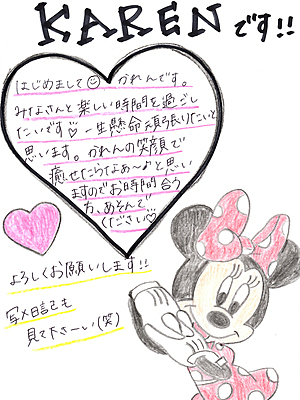 KARENです!!
はじめまして☺ かれんです。
みなさんと楽しい時間を過ごし
たいです♡ 一生懸命頑張りたいと
思います。かれんの笑顔で
癒せたらなぁ〜♪と思い
ますのでお時間合う
方、あそんで
ください♡
よろしくお願いします!!
写メ日記も
見て下さーい(笑)